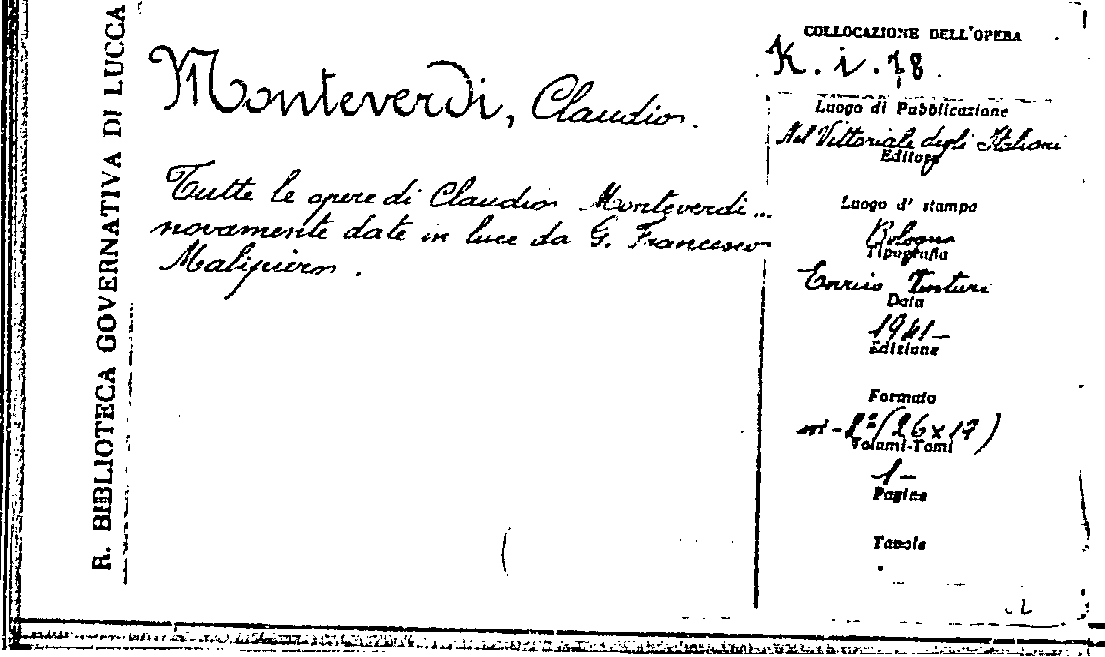 R. BIBLIOTECA GOVERNATIVA DI LUCCA
Monteverdi, Claudio.
Tutte le opere di Claudio Monteverdi...
novamente date in luce da G. Francesco
Malipiero.
COLLOCAZIONE DELL'OPERA
K. i. 18.
Luogo di Pubblicazione
Nel Vittoriale degli Italiani
Editore
Luogo d' stampa
Bologna
Tipografia
Enrico Venturi
Data
1941-
Edizione
Formato
in-2º (26x17)
Volumi-Tomi
1-
Pagine
Tavole